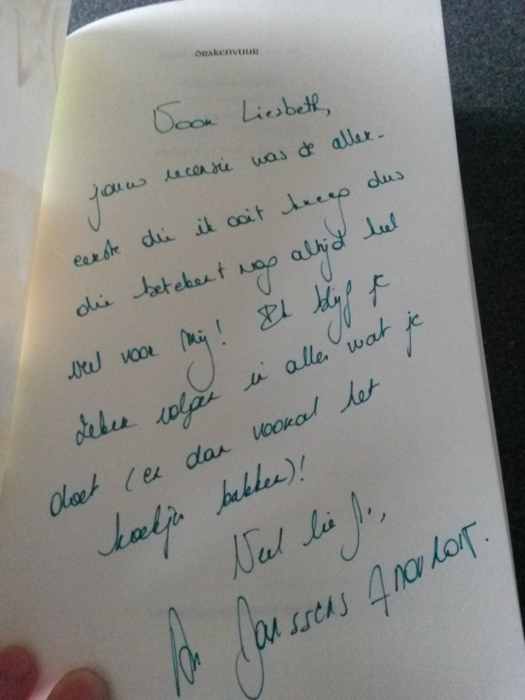 DRAKENVUUR
Voor Liesbeth,
jouw recensie was de aller-
eerste die ik ooit kreeg dus
die betekent nog altijd heel
veel voor mij! Ik blijf je
zeker volgen in alles wat je
doet (en dan vooral het
koekjes bakken)!
Veel liefs,
An Janssens